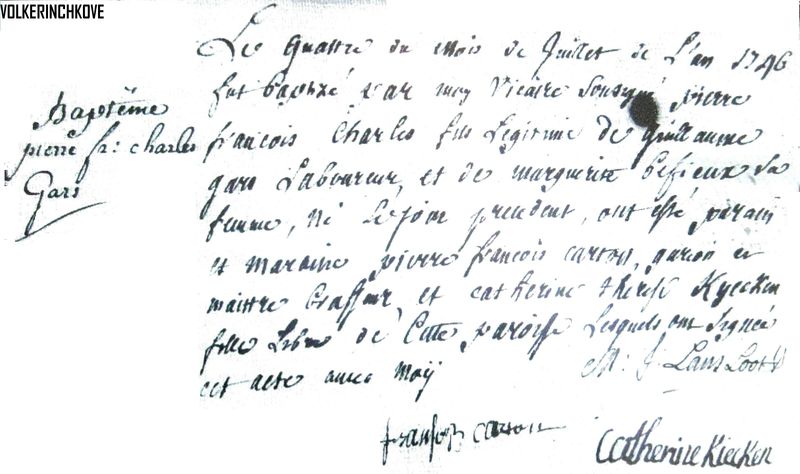 VOLKERINCHKOVE
Le quattre du mois de Juillet de L'an 1746
fut baptizé par moy Vicaire Soussigné pierre
Baptême
pierre fr: charles
Gars
francois Charles fils Legitime de guillaume
gars Laboureur, et de marguerite Befieux sa
femme, né Le jour precedent, ont esté parain
et maraine pierre francois carton garçon et
maistre brasseur, et catherine therese Kyecken
fille Libre de Cette paroisse Lesquels ont signée
cet acte avec moÿ
M: J: Lans Loot
fransois carton
catherine Kiecken